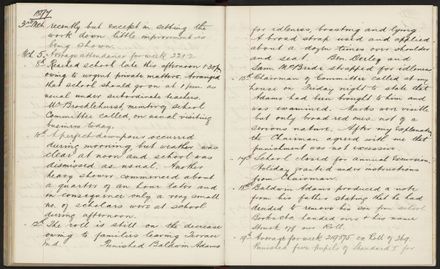 1877
3rd Feb recently but except in setting the
work down little improvement is
being shown.
Average attendance for week
Reached school late this afternoon 1.30pm
owing to urgent private matters. Arranged
that school should go on at 1pm as
usual under subordinate teachers.
Mr Brocklehurst, member of School
Committee called on usual visiting
business today.
A perfect downpour occurred
during morning but weather was
clear at noon and school was
dismissed as usual. Another
heavy shower commenced about
a quarter of an hour later and
in consequence only a very small
no. of scholars were at school
during afternoon.
The roll is still on the decrease
owing to families leaving
Punished Baldwin Adams
for idleness, boasting and lying
A broad strap used and applied
about a dozen times over shoulder
and seat. Ben Berley and
Sam McBride strapped for idleness
Chairman of Committee called at my
house on Friday night to state that
Adams had been brought to him and
was examined. Marks were visible
but only broad red ones not of a
serious nature. After my explanation
the Chairman agreed with me that
punishment was not excessive.
School closed for annual
Holiday granted under instructions
from Chairman
Baldwin Adams produced a note
from his father stating that he had
decided to remove his son from school
Books &c handed over & his name
struck off our Roll.
Average for week
Punished five pupils of Standard 5 for